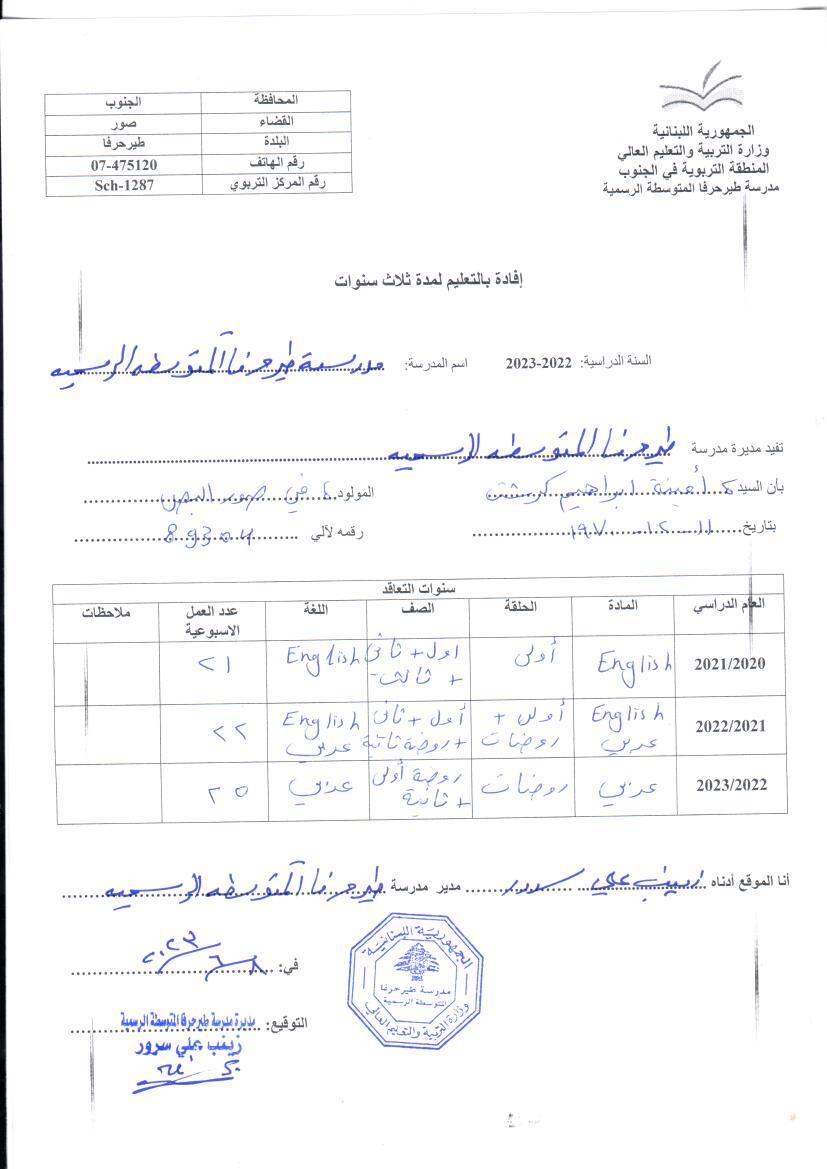 الجمهورية اللبنانية
وزارة التربية والتعليم العالي
المنطقة التربوية في الجنوب
مدرسة طيرحرفا المتوسطة الرسمية
المحافظة الجنوب
القضاء صور
البلدة طيرحرفا
رقم الهاتف 07-475120
رقم المركز التربوي Sch-1287
إفادة بالتعليم لمدة ثلاث سنوات
السنة الدراسية: 2022-2023 اسم المدرسة: مدرسة طيرحرفا المتوسطه الرسميه
تفيد مديرة مدرسة طيرحرفا المتوسطه الرسميه
بأن السيدة ابراهيم المولودة في صور البص
بتاريخ ١١-١٢-١٩٧٠ رقمه لآلي
سنوات التعاقد
العام الدراسي المادة الحلقة الصف اللغة عدد العمل الاسبوعية ملاحظات
2021/2020 English أولى اول + ثاني + ثالث English ٢١
2022/2021 English عربي أولى + روضات أول + ثاني + روضة ثانية English عربي ٢٢
2023/2022 عربي روضات روضة أولى + ثانية عربي ٢٥
أنا الموقع أدناه زينب علي سرور مدير مدرسة طيرحرفا المتوسطه الرسميه
في: ٨/٦/٢٠٢٣
التوقيع: مديرة مدرسة طيرحرفا المتوسطة الرسمية
زينب علي سرور
الجمهورية اللبنانية
مدرسة طيرحرفا
المتوسطة الرسمية
وزارة التربية والتعليم العالي